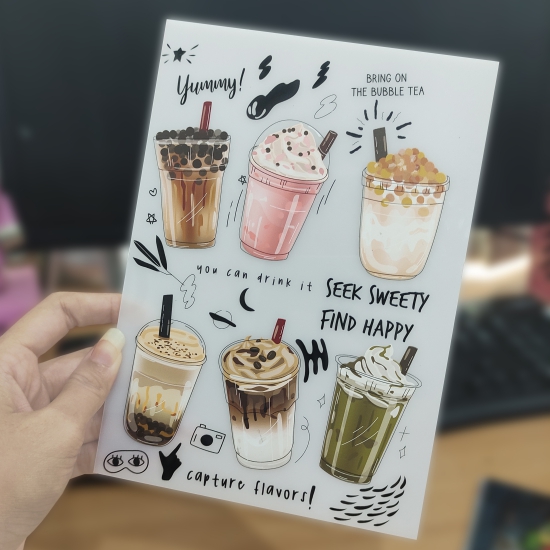 Yummy!
BRING ON
THE BUBBLE TEA
you can drink it
SEEK SWEETY
FIND HAPPY
capture flavors!